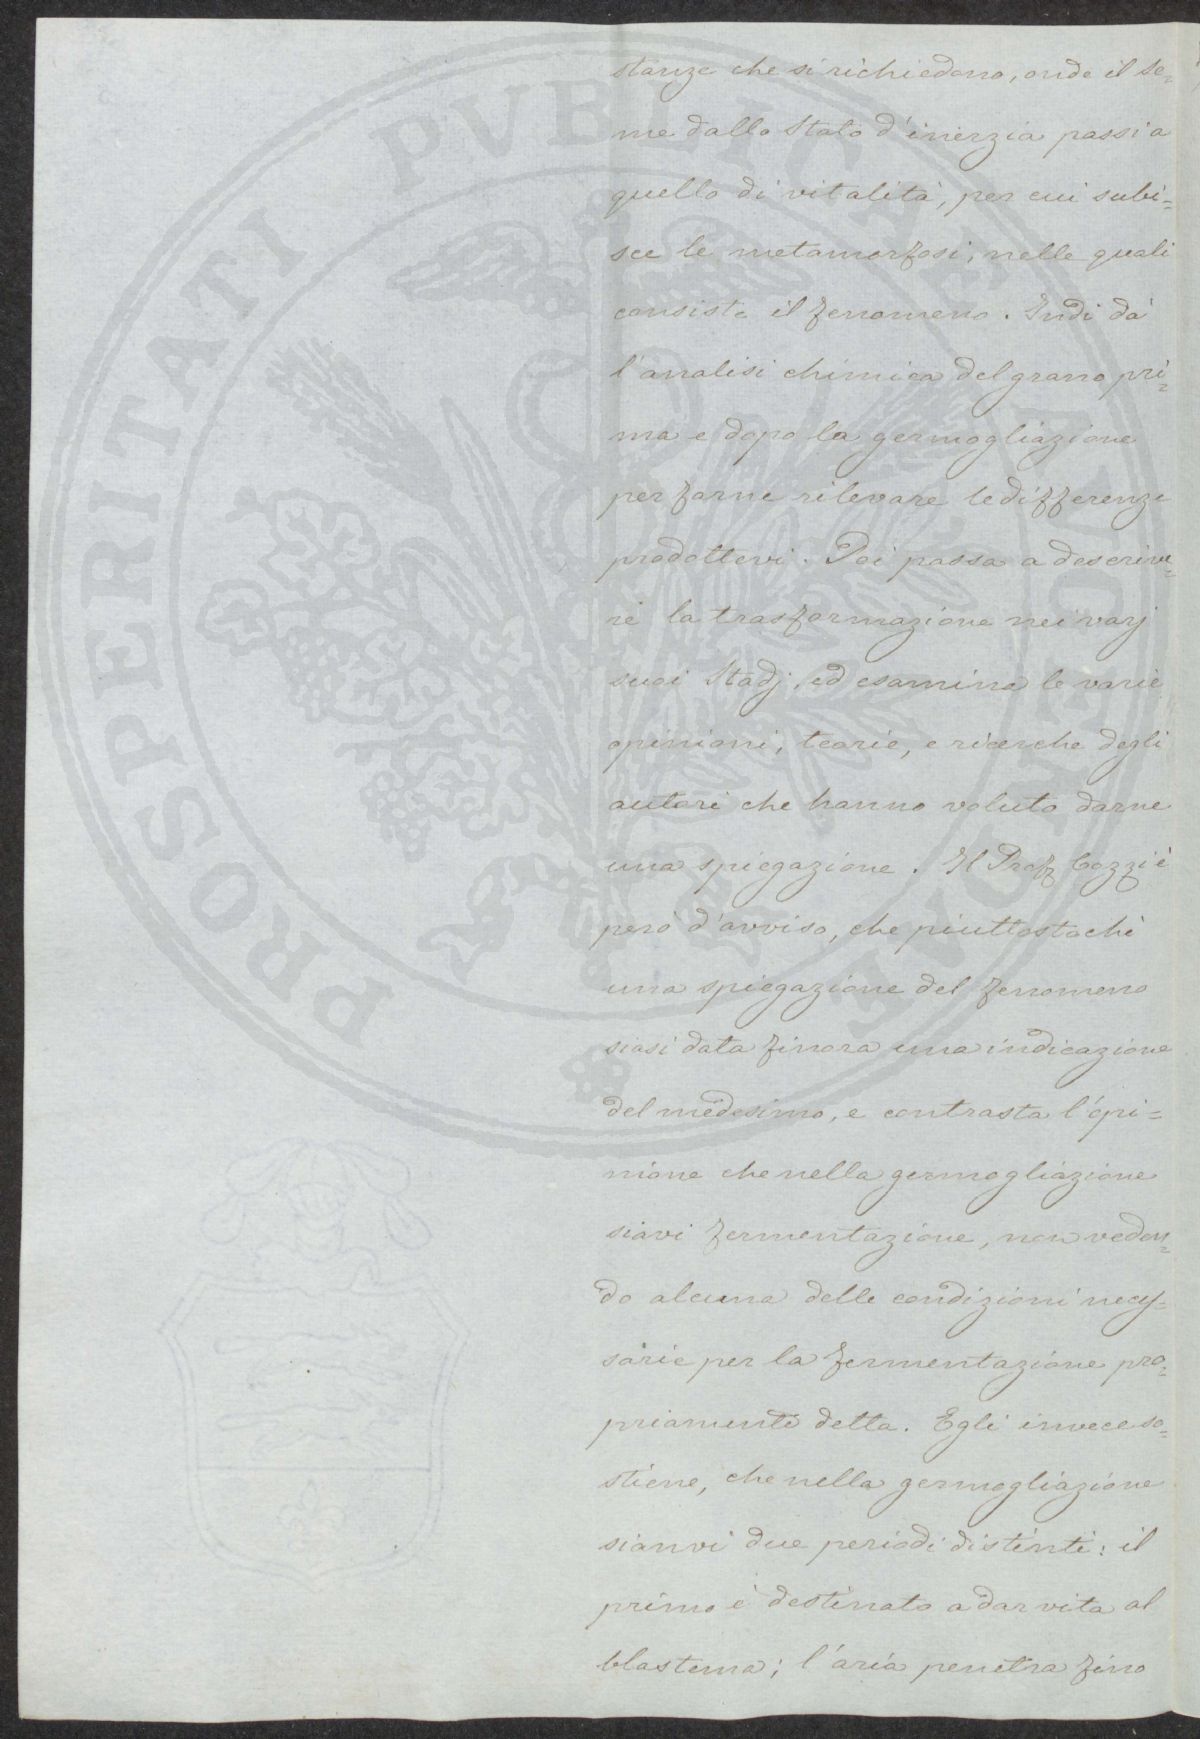 stanze che si richiedono, onde il se=
me dallo Stato d'inerzia passi a
quello di vitalità, per cui subi=
sce le metamorfosi, nelle quali
consiste il fenomeno. Indi dà
l'analisi chimica del grano pri=
ma e dopo la germogliazione
per farne rilevare le differenze
prodottevi. Poi passa a descrive=
re la trasformazione nei varj
suoi Stadj, ed esamina le varie
opinioni, teorie, e ricerche degli
autori che hanno voluto darne
una spiegazione. Il Prof Cozzi è
però d'avviso, che piuttostochè
una spiegazione del fenomeno
siasi data finora una indicazione
del medesimo, e contrasta l'opi=
nione che nella germogliazione
siavi fermentazione, non veden=
do alcuna delle condizioni neces=
sarie per la fermentazione pro=
priamente detta. Egli invece so=
stiene, che nella germogliazione
sianvi due periodi distinti: il
primo è destinato a dar vita al
blastema; l'aria penetra fino
PROSPERITATI PVBLICAE AVGENDAE